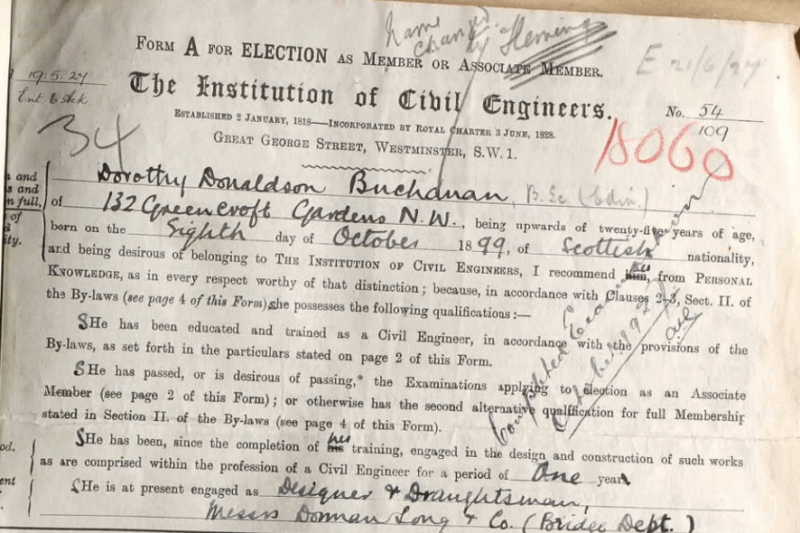 Name
changed
by Fleming
FORM A FOR ELECTION AS MEMBER OR ASSOCIATE MEMBER.
E 21/6/27
19.5.27
Ent & Ack.
The Institution of Civil Engineers.
No. 54
109
ESTABLISHED 2 JANUARY, 1818—INCORPORATED BY ROYAL CHARTER 3 JUNE, 1828.
34
18060
GREAT GEORGE STREET, WESTMINSTER, S.W. 1.
Dorothy Donaldson Buchanan, B.Sc (Edin.)
of 132 Greencroft Gardens N.W., being upwards of twenty-five years of age,
born on the Eighth day of October 1899, of Scottish nationality,
and being desirous of belonging to THE INSTITUTION OF CIVIL ENGINEERS, I recommend him her, from PERSONAL
KNOWLEDGE, as in every respect worthy of that distinction; because, in accordance with Clauses 2-3, Sect. II. of
the By-laws (see page 4 of this Form), she possesses the following qualifications:—
SHe has been educated and trained as a Civil Engineer, in accordance with the provisions of the
By-laws, as set forth in the particulars stated on page 2 of this Form.
SHe has passed, or is desirous of passing,* the Examinations applying to election as an Associate
Member (see page 2 of this Form); or otherwise has the second alternative qualification for full Membership
stated in Section II. of the By-laws (see page 4 of this Form).
SHe has been, since the completion of his her training, engaged in the design and construction of such works
as are comprised within the profession of a Civil Engineer for a period of One year
SHe is at present engaged as Designer & Draughtsman,
Messrs Dorman Long & Co. (Bridge Dept.)
Completed
October 192
and
s and
n full,
of
ity.
od.
ent